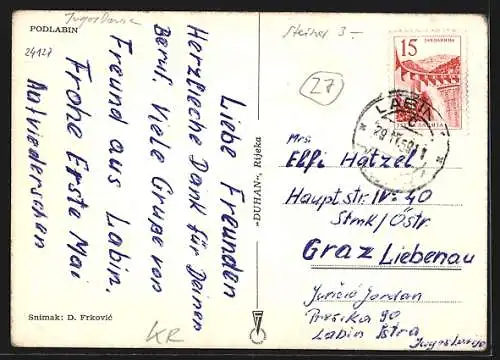 Jugoslavia
PODLABIN
24127
Steiner 3-
27
15
JUGOSLAVIJA
LABIN
29.IV.59.11
Liebe Freunden
Herzlieche Dank für Deinen
Beruf. Viele Grupe von
Freund aus Labin.
Frohe Erste Mai
Aufwiederschen
"DUHAN"- Rijeka
Mrs
Elfi Hatzel
Hauptstr. Nr: 40
Stmk/Östr.
Graz Liebenau
Juričić Jordan
90
Labin Istra
Jugoslavija
Snimak: D. Frković
KR